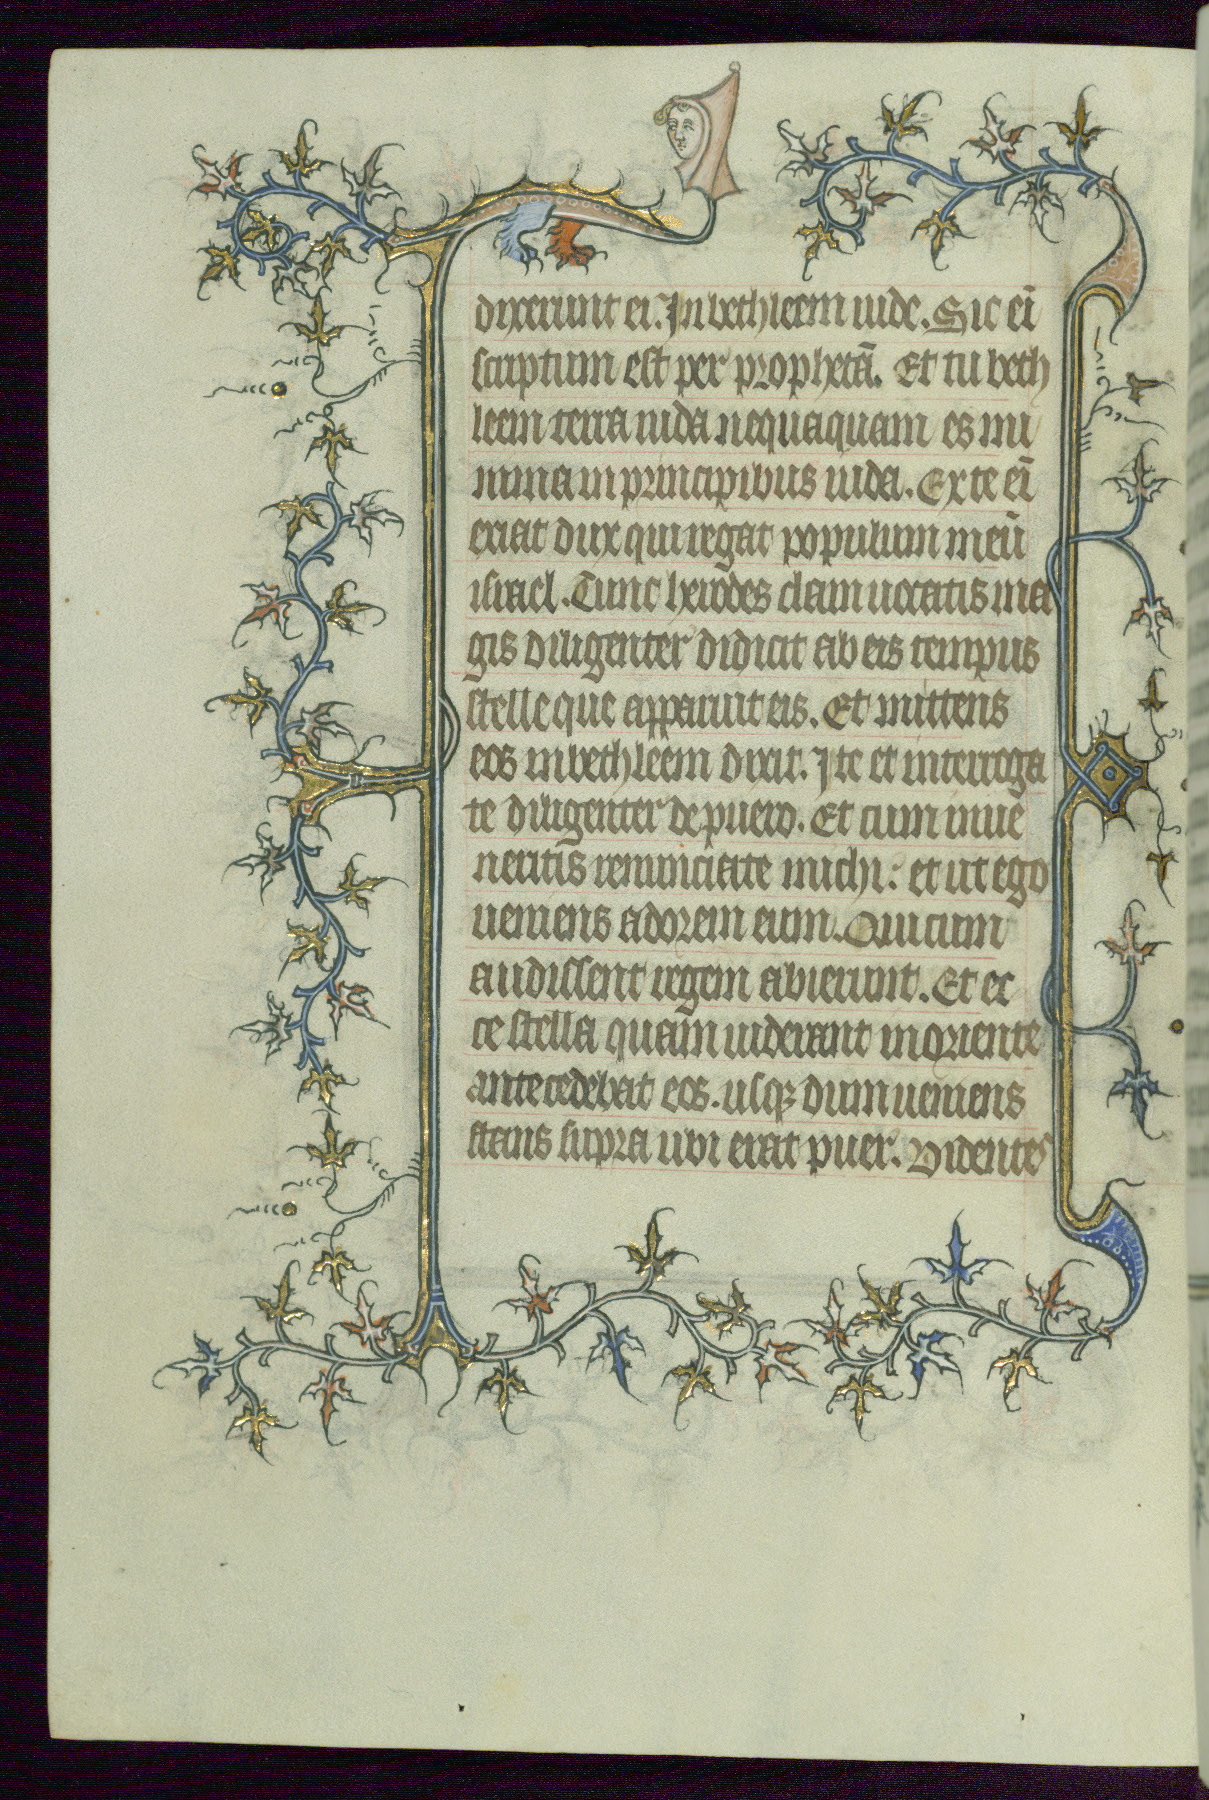 dixerunt ei. In bethleem iude. Sic eī
scriptum est per prophetā. Et tu beth
leem terra iuda nequaquam es mi
nima in principibus iuda. Ex te eī
exiat dux qui regat populum meū
israel. Tunc herodes clam uocatis ma
gis diligenter didicit ab eis tempus
stelle que apparuit eis. Et mittens
eos in bethleem dixit. Ite et interroga
te diligenter de puero. Et cum inue
neritis renunciate michi: et ut ego
ueniens adorem eum. Qui cum
audissent regem abierunt. Et ec
ce stella quam uiderant in oriente
antecedebat eos. usqꝫ dum ueniens
staret supra ubi erat puer. Videntes